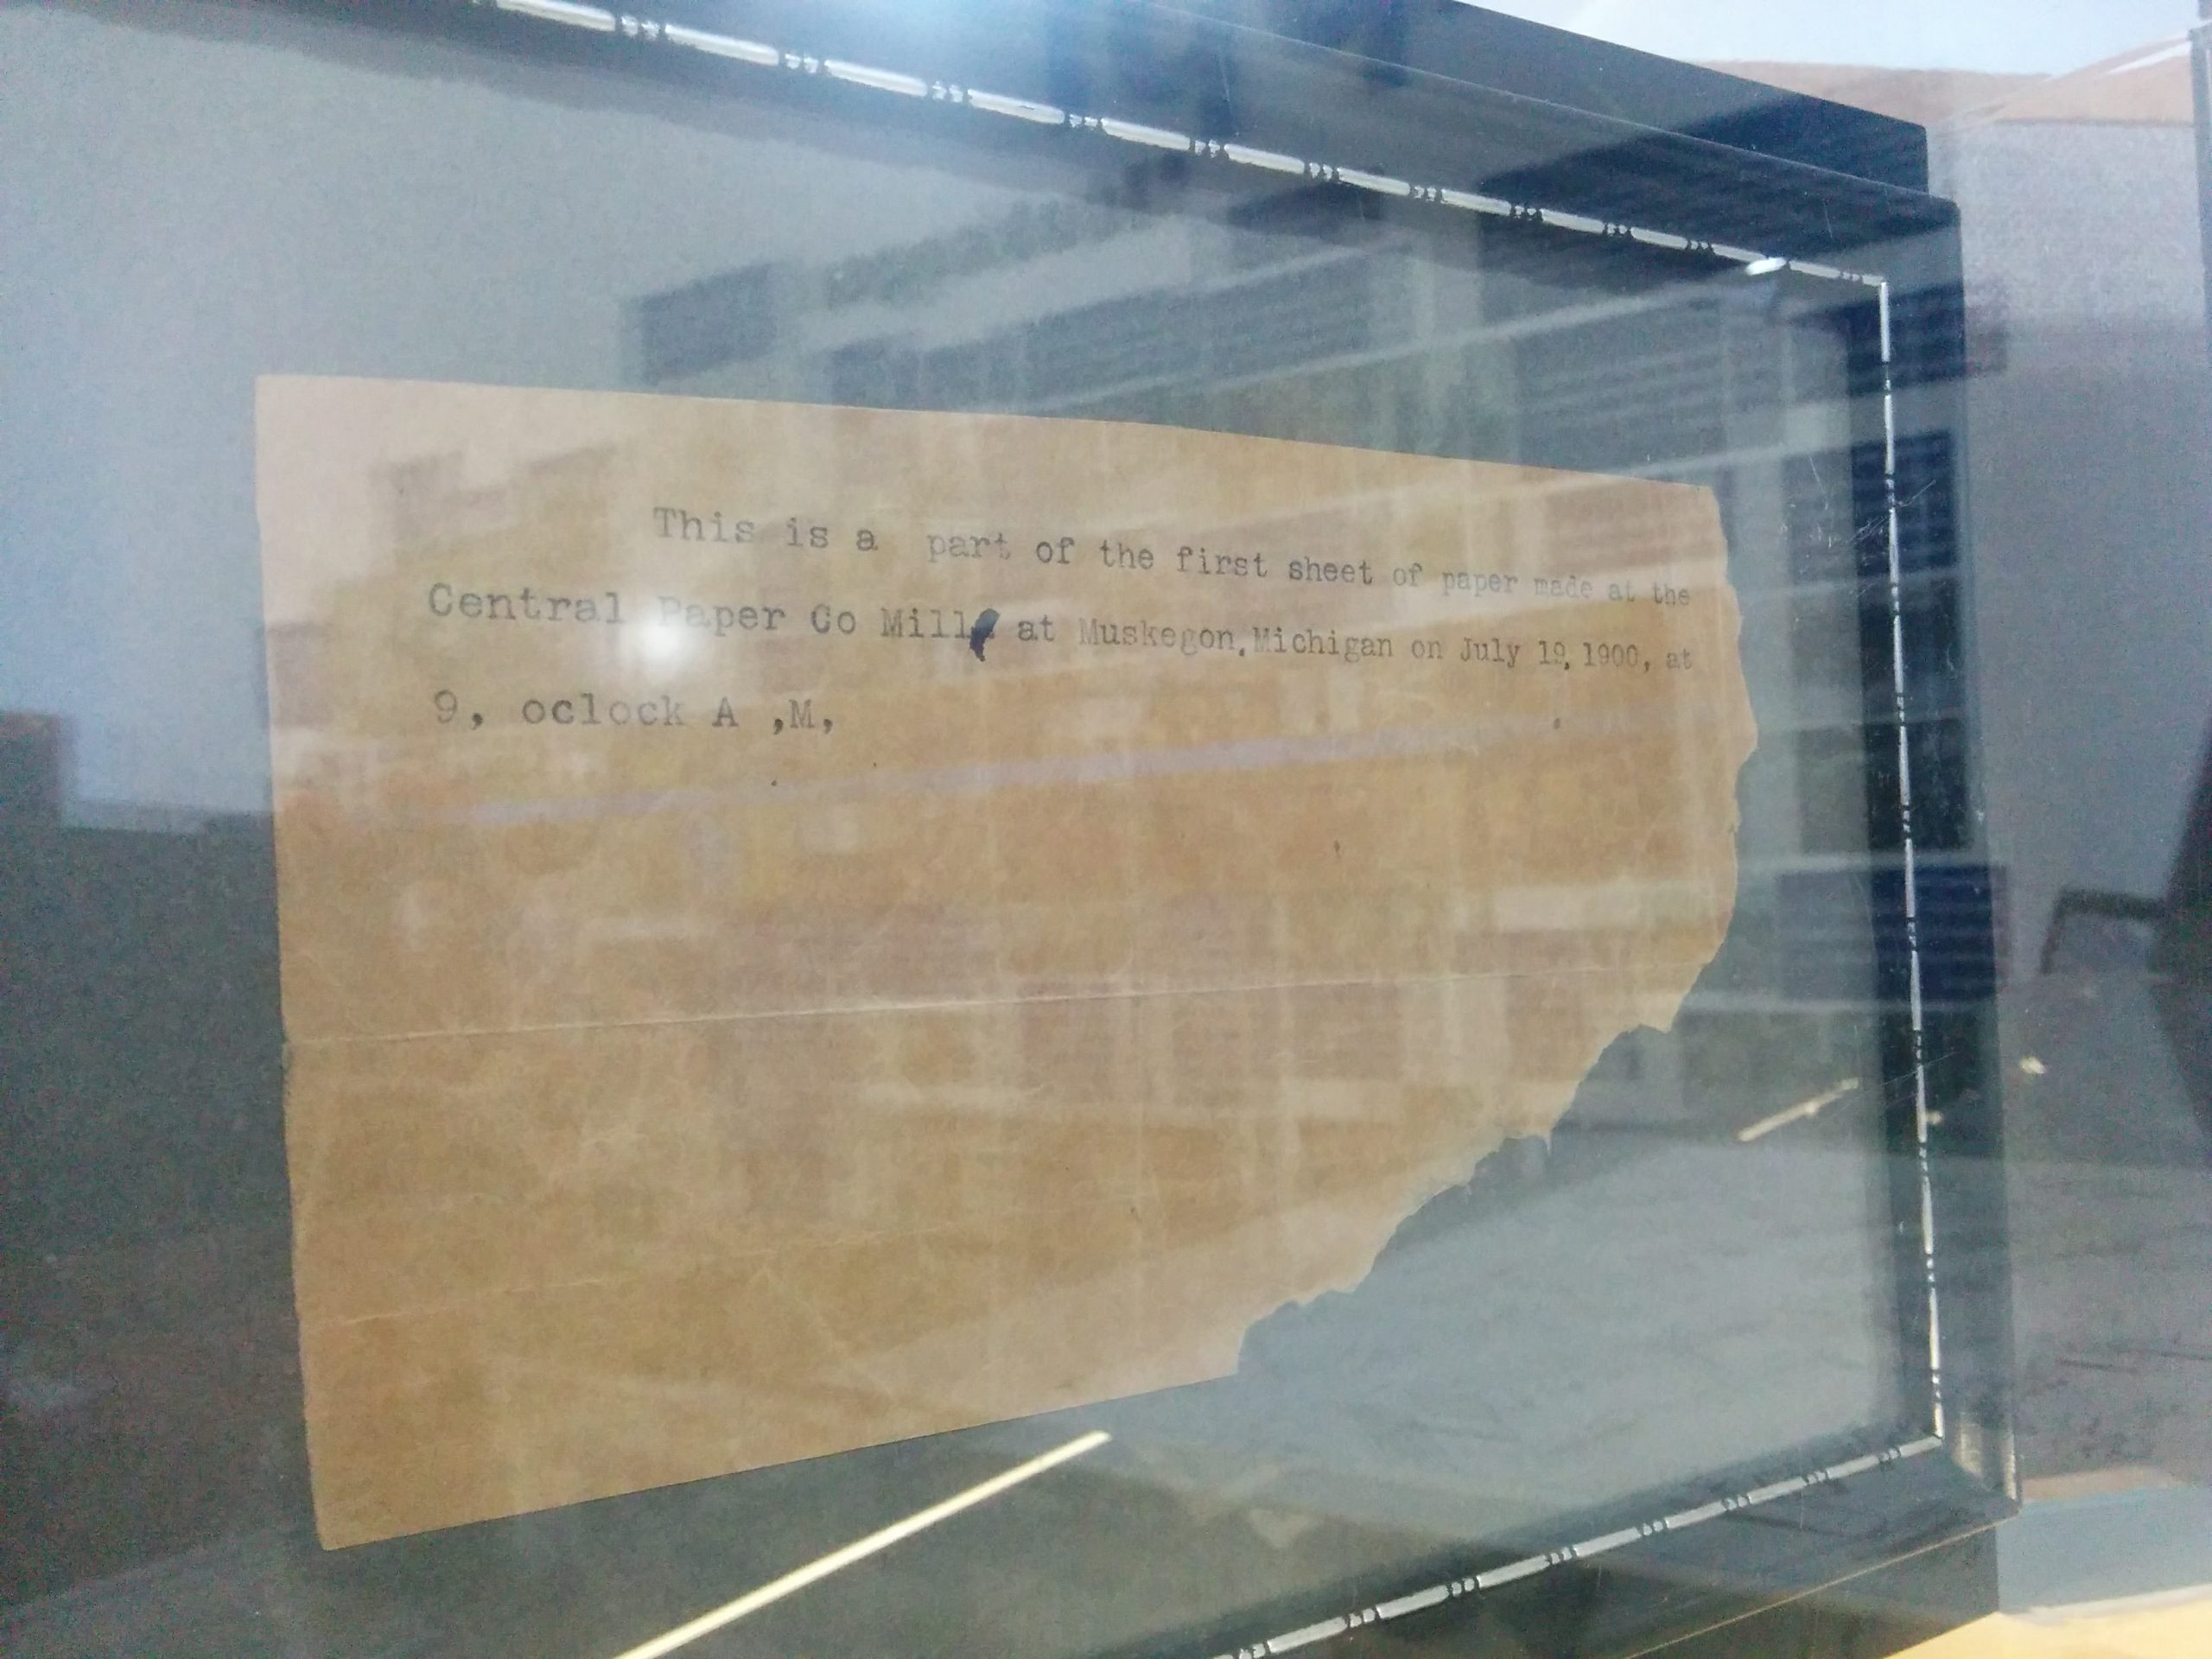 This is a part of the first sheet of paper made at the
Central Paper Co Mill at Muskegon, Michigan on July 19, 1900, at
9, oclock A ,M,